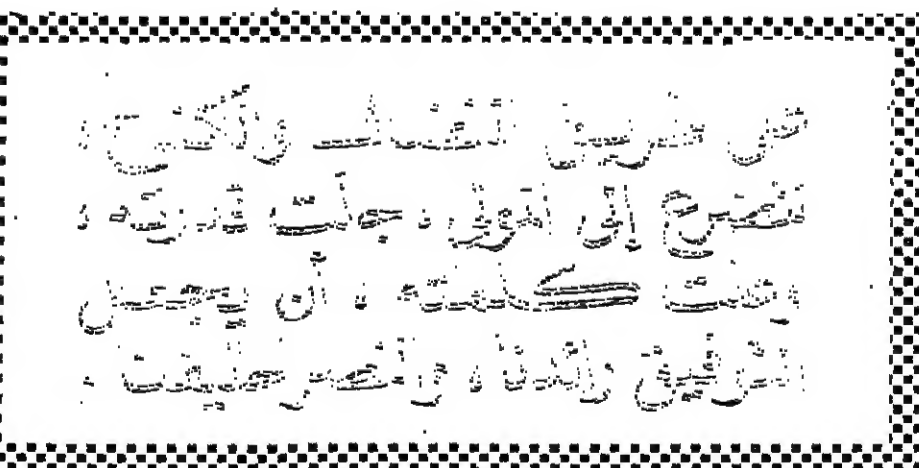 طريق النضال والكفاح ،
نضرع إلى المولى ، جلت قدرته ،
وعلت كلمته ، أن يجعل
التوفيق رائدنا ، والنصر حليفنا .